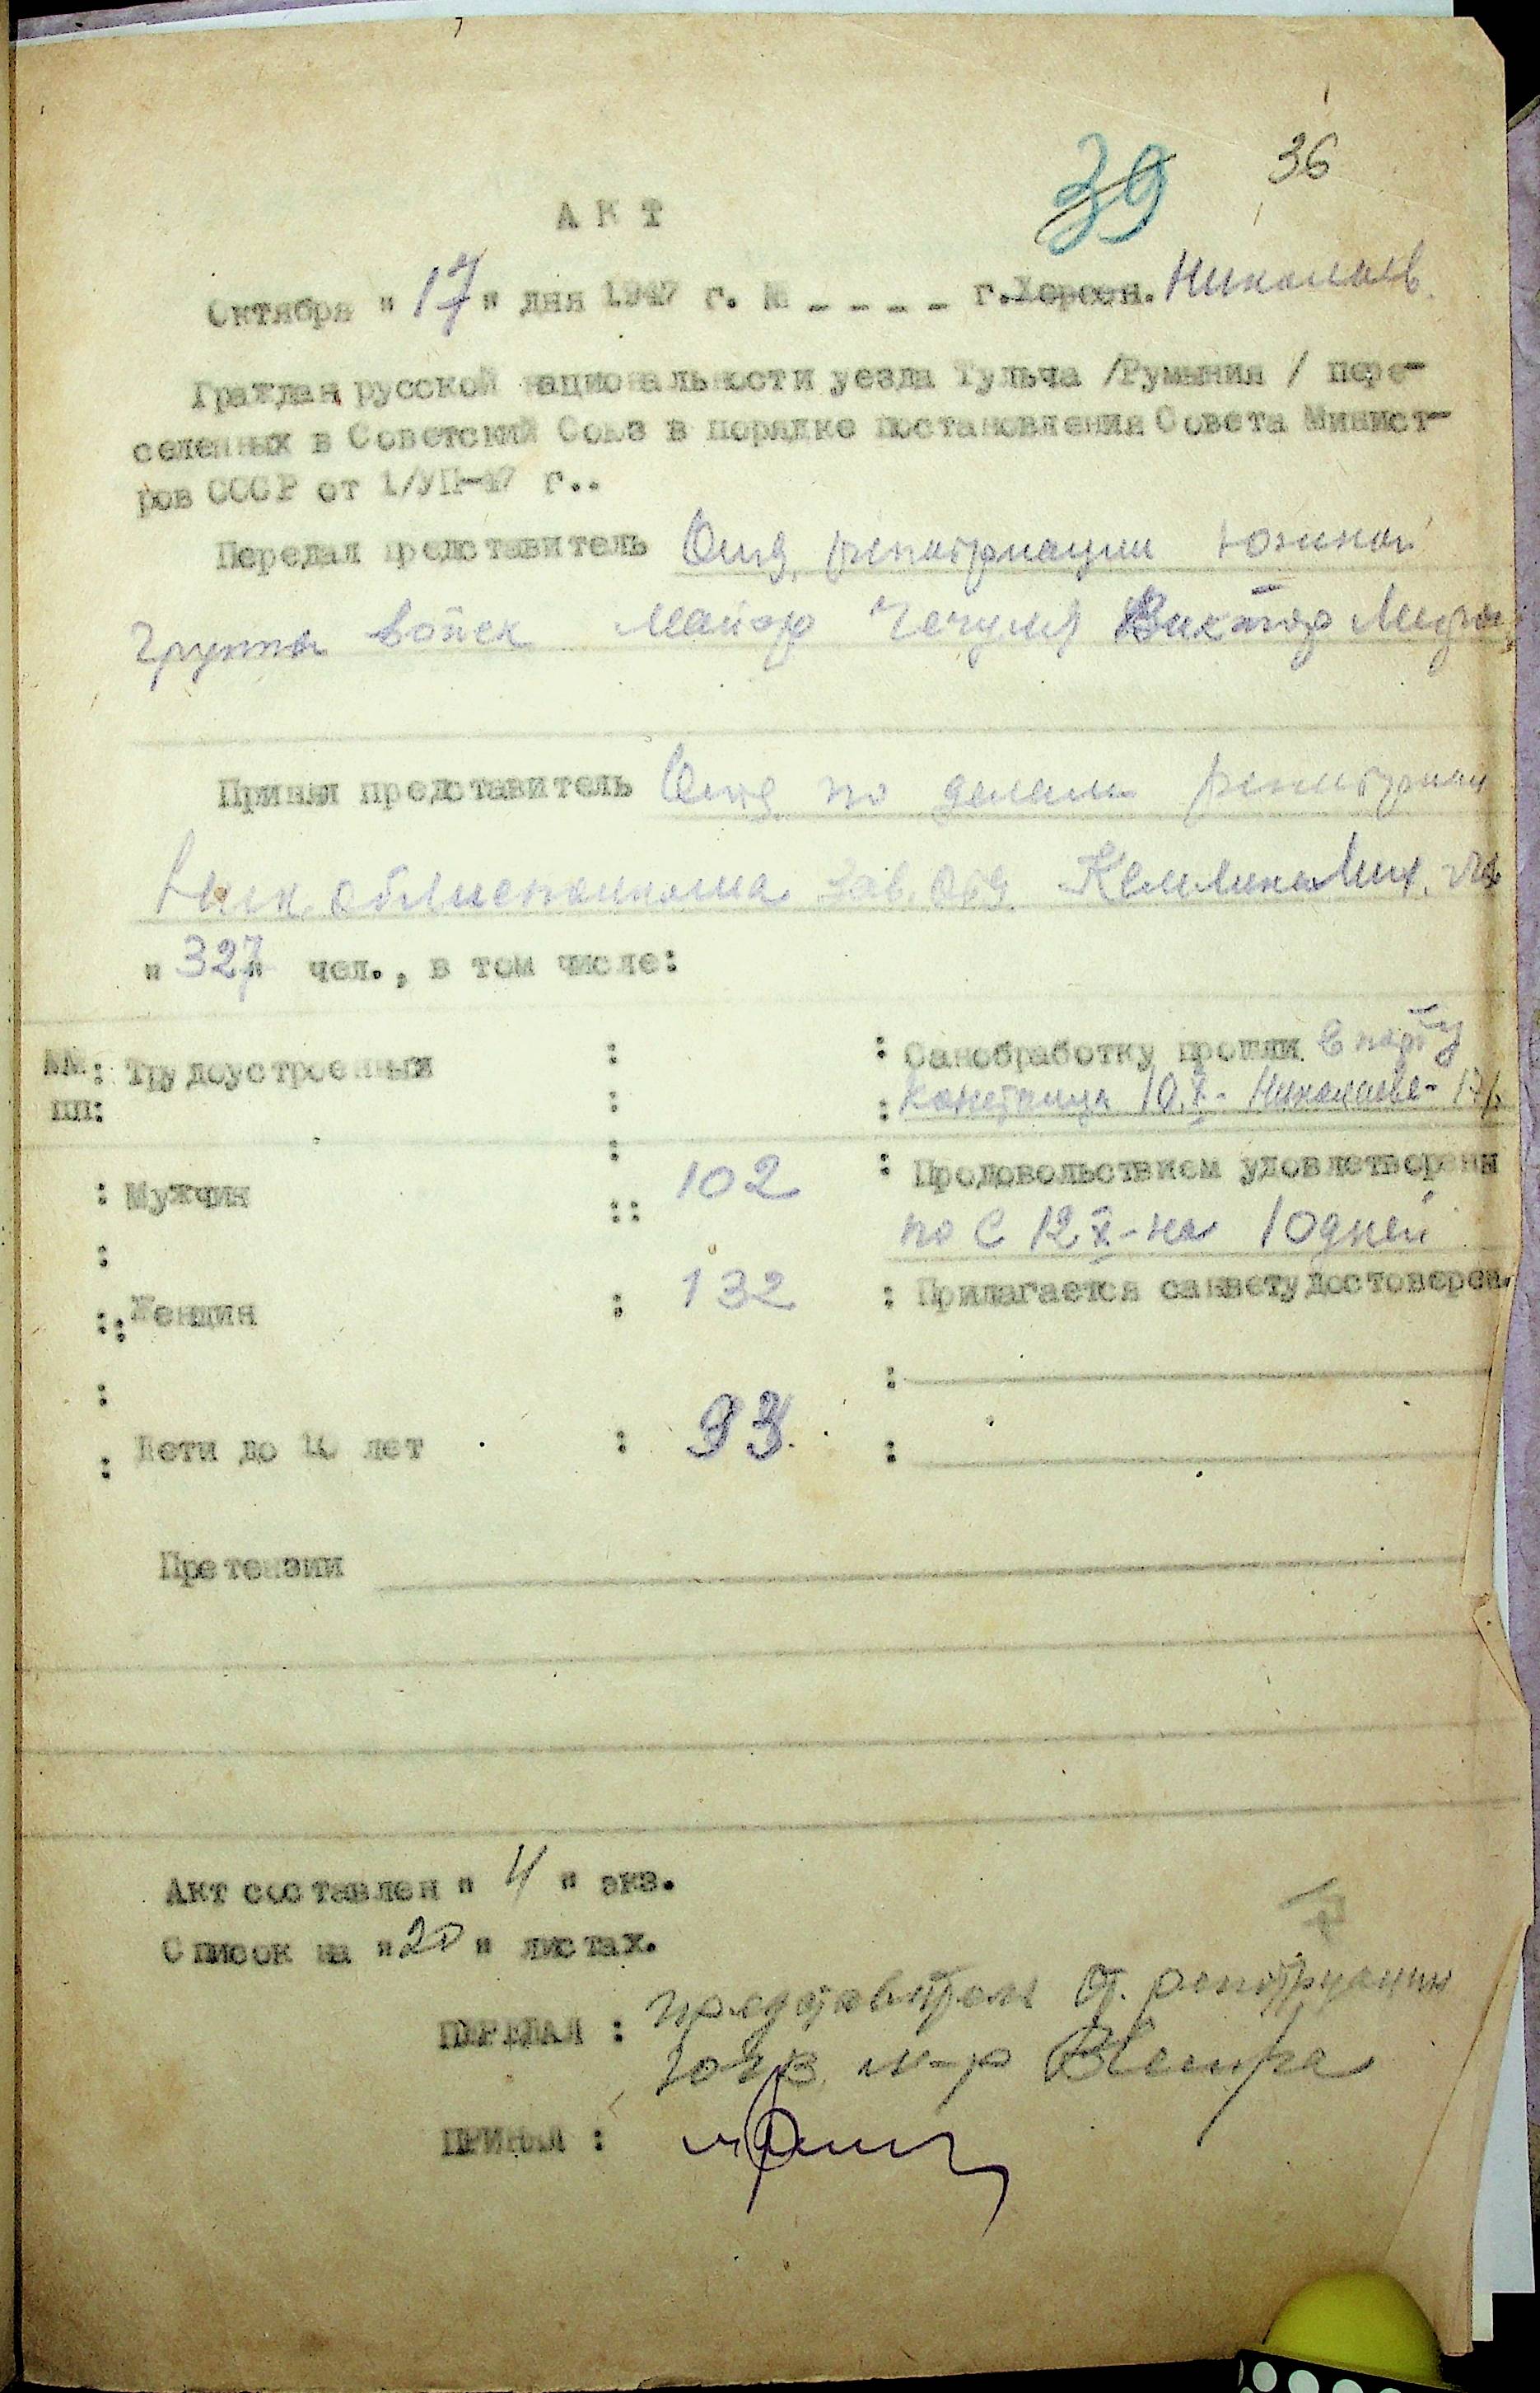 39 36
АКТ
Октября "17" дня 1947 г. № _ _ _ _ г. Херсон. Николаев.
Граждан русской национальности уезда Тульча /Румыния / пере-
селенных в Советский Союз в порядке постановления Совета Минист-
ров СССР от 1/УП-47 г..
Передал представитель Отд. репатриации Южной
группы войск майор Виктор
Принял представитель Отд по делам репатриац
Ник. облисполкома Зав. Отд.
"327" чел., в том числе:
№№: Трудоустроенных : : Санобработку прошли в порту
пп: : : Констанца 10.X - Николаеве - 17/
: Мужчин :: 102 : Продовольствием удовлетворены
по с 12 X - на 10 дней
:: Женщин : 132 : Прилагается санветудостоверен.
: Дети до 16 лет : 93. :
Претензии
Акт составлен "4" экз.
Список на "20" листах.
ПЕРЕДАЛ : представитель От. репатриации
ЮГВ. м-р
ПРИНЯЛ :